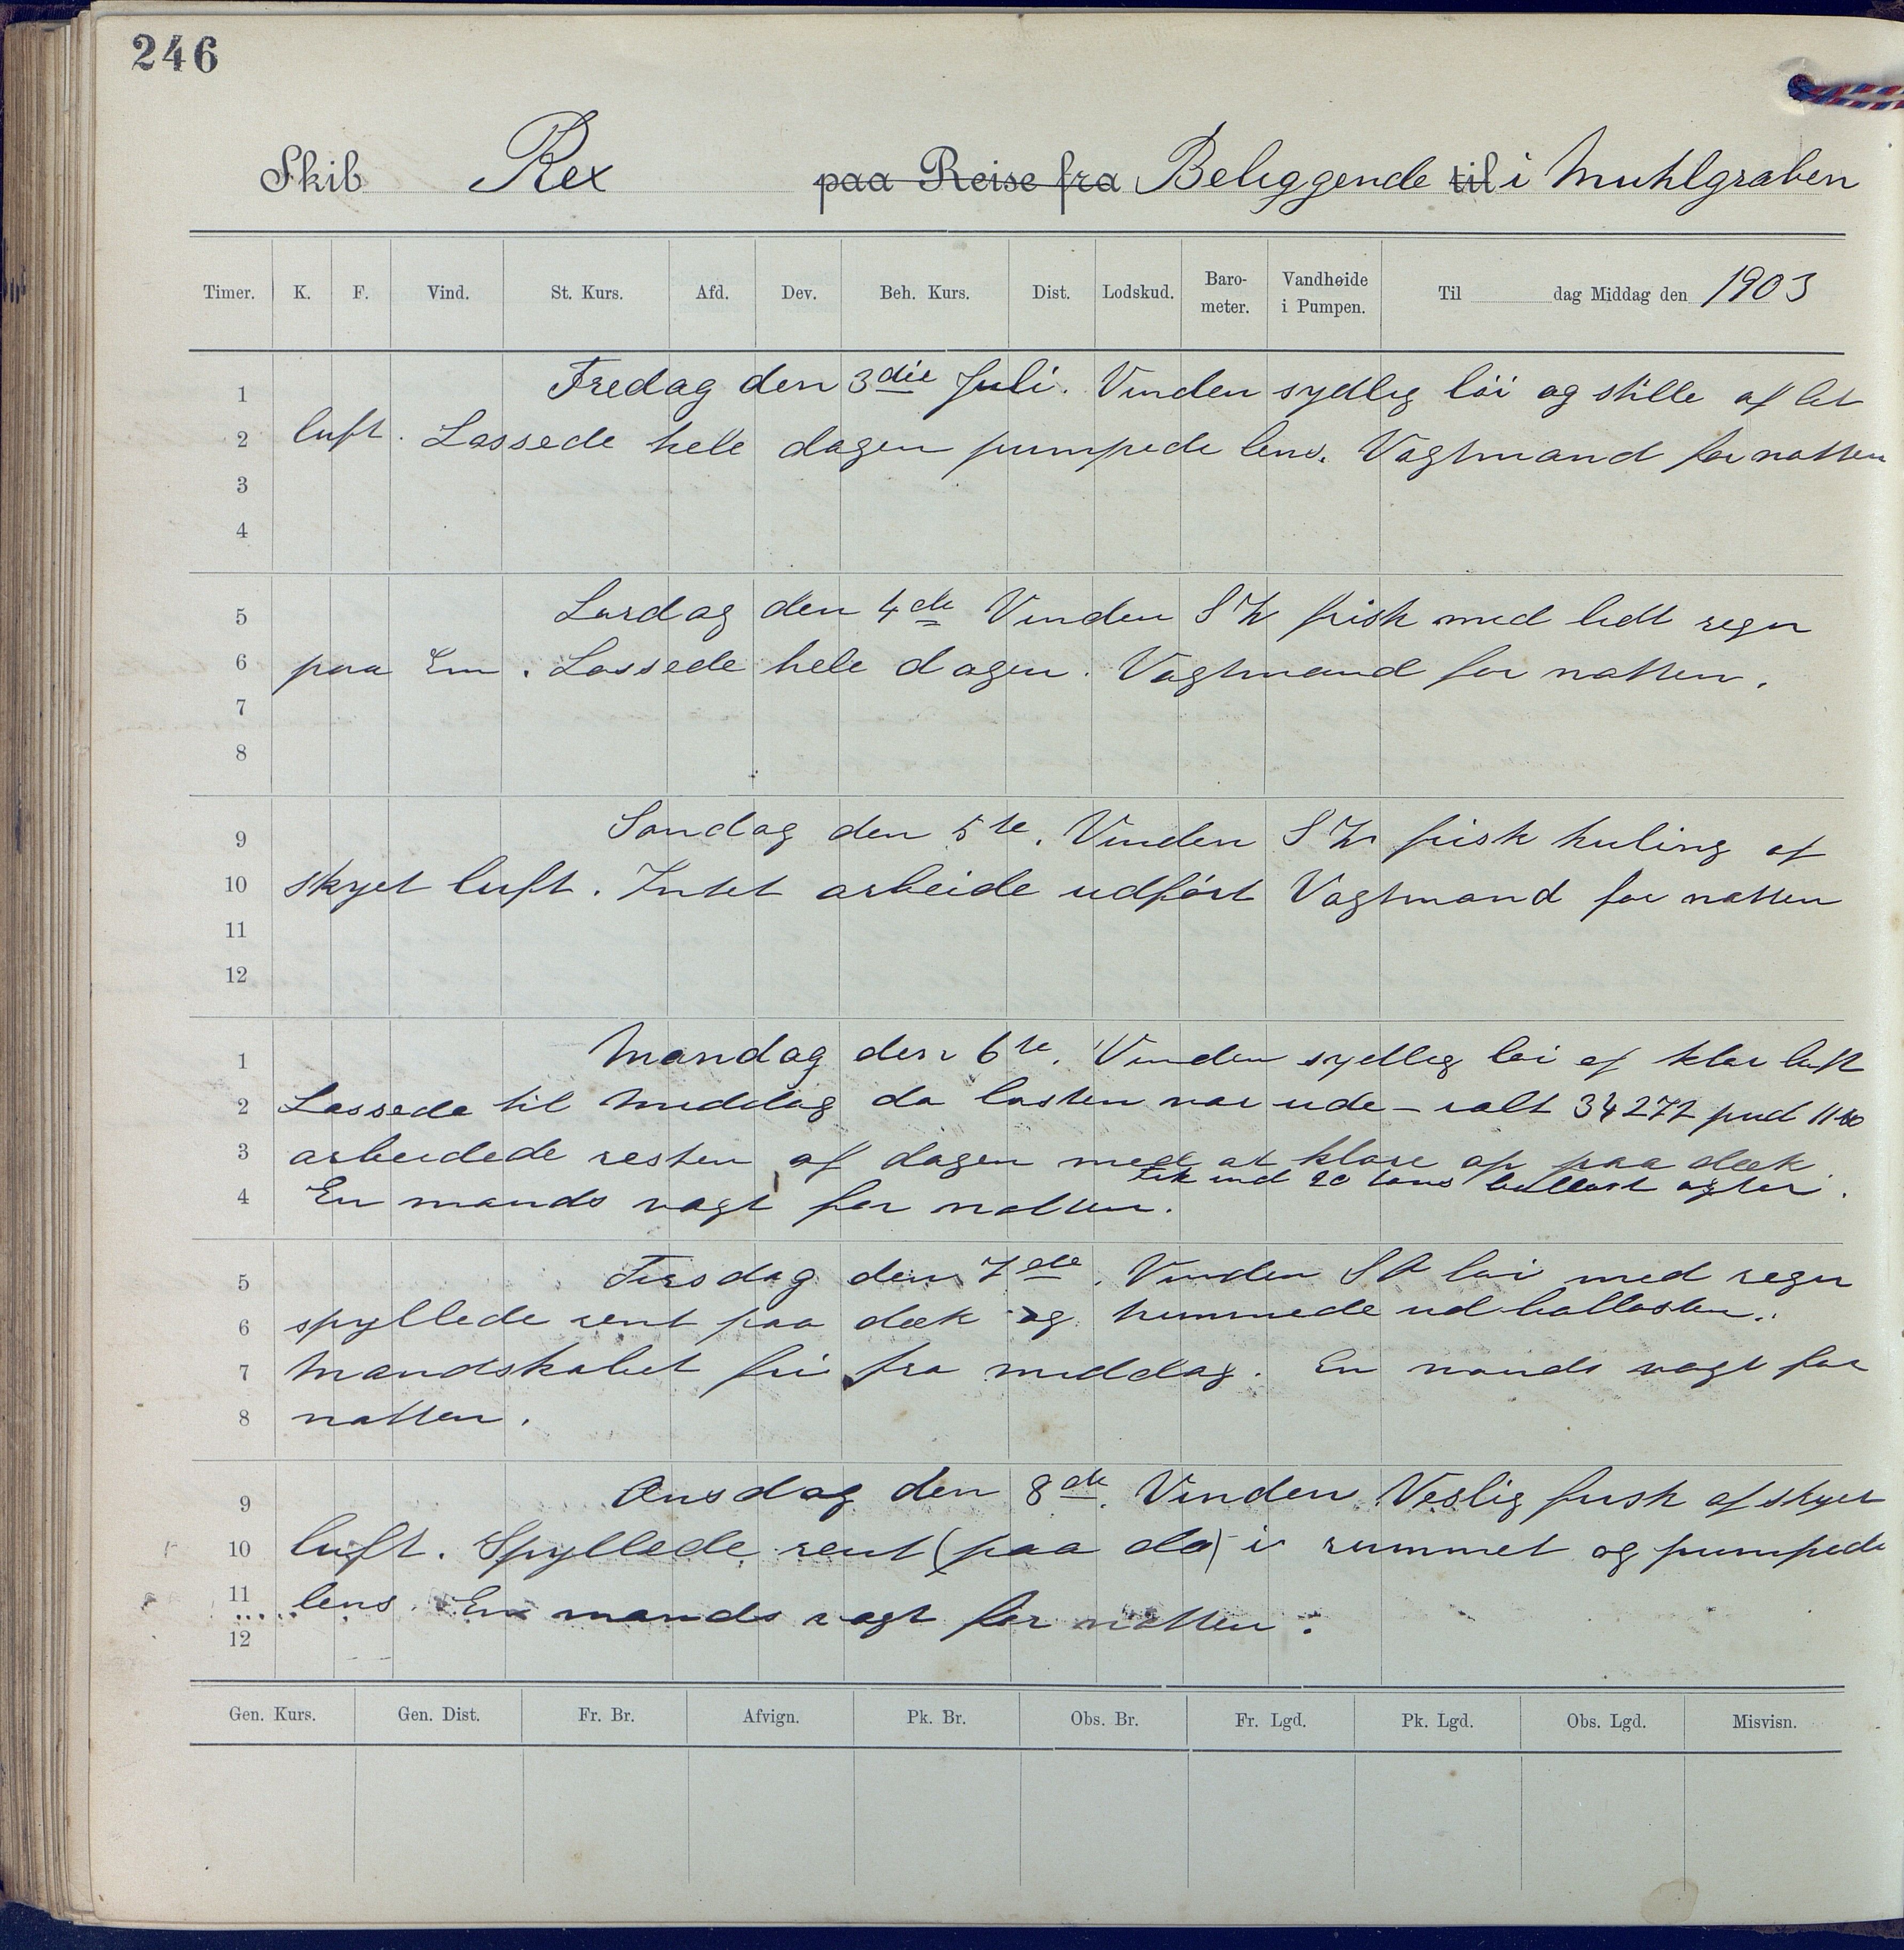 246
Skib Rex paa Reise fra Beliggende til i Muhlgraben
Timer. K. F. Vind. St. Kurs. Afd. Dev. Beh. Kurs. Dist. Lodskud. Baro-meter. Vandhøide i Pumpen. Til dag Middag den 1903
1 Fredag den 3die Juli. Vinden sydlig löi og stille af let
2 luft. Lossede hele dagen pumpede lens. Vagtmand for natten
3
4
5 Lørdag den 4de Vinden SW frisk med lidt regn
6 paa Em. Lossede hele dagen. Vagtmand for natten.
7
8
9 Søndag den 5te. Vinden SW frisk kuling af
10 skyet luft. Intet arbeide udfört Vagtmand for natten
11
12
1 Mandag den 6te. Vinden sydlig løi af klar luft
2 Lossede til Middag da lasten var ude - ialt 34272 pud
3 arbeidede resten af dagen med at klare op paa dæk.
Fik ind 20 tons ballast agter.
4 En mands vagt for natten.
5 Tirsdag den 7de. Vinden SO løi med regn
6 spyllede rent paa dæk og trimmede ud ballasten.
7 Mandskabet fri fra middag. En mands vagt for
8 natten.
9 Onsdag den 8de. Vinden Vestlig frisk af skyet
10 luft. Spyllede rent (paa dæ) i rummet og pumpede
11 lens. En mands vagt for natten.
12
Gen. Kurs. Gen. Dist. Fr. Br. Afvign. Pk. Br. Obs. Br. Fr. Lgd. Pk. Lgd. Obs. Lgd. Misvisn.